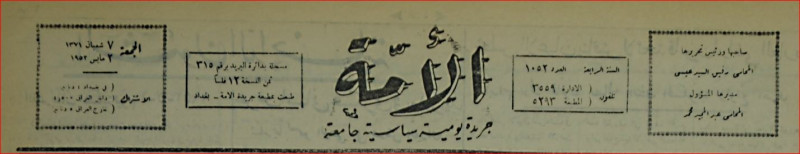 صاحبها ورئيس تحريرها
المحامي
مديرها المسؤول
المحامي عبد المجيد محمد
السنة الرابعة العدد ١٠٥٢
تلفون الادارة ٣٥٥٩
المطبعة ٥٢٩٣
الأمة
جريدة يومية سياسية جامعة
مسجلة بدائرة البريد برقم ٣١٥
ثمن النسخة ١٢ فلسا
طبعت بمطبعة جريدة الامة - بغداد
الجمعة ٧ شعبان ١٣٧١
٢ مايس ١٩٥٢
في بغداد
الاشتراك داخل العراق
خارج العراق